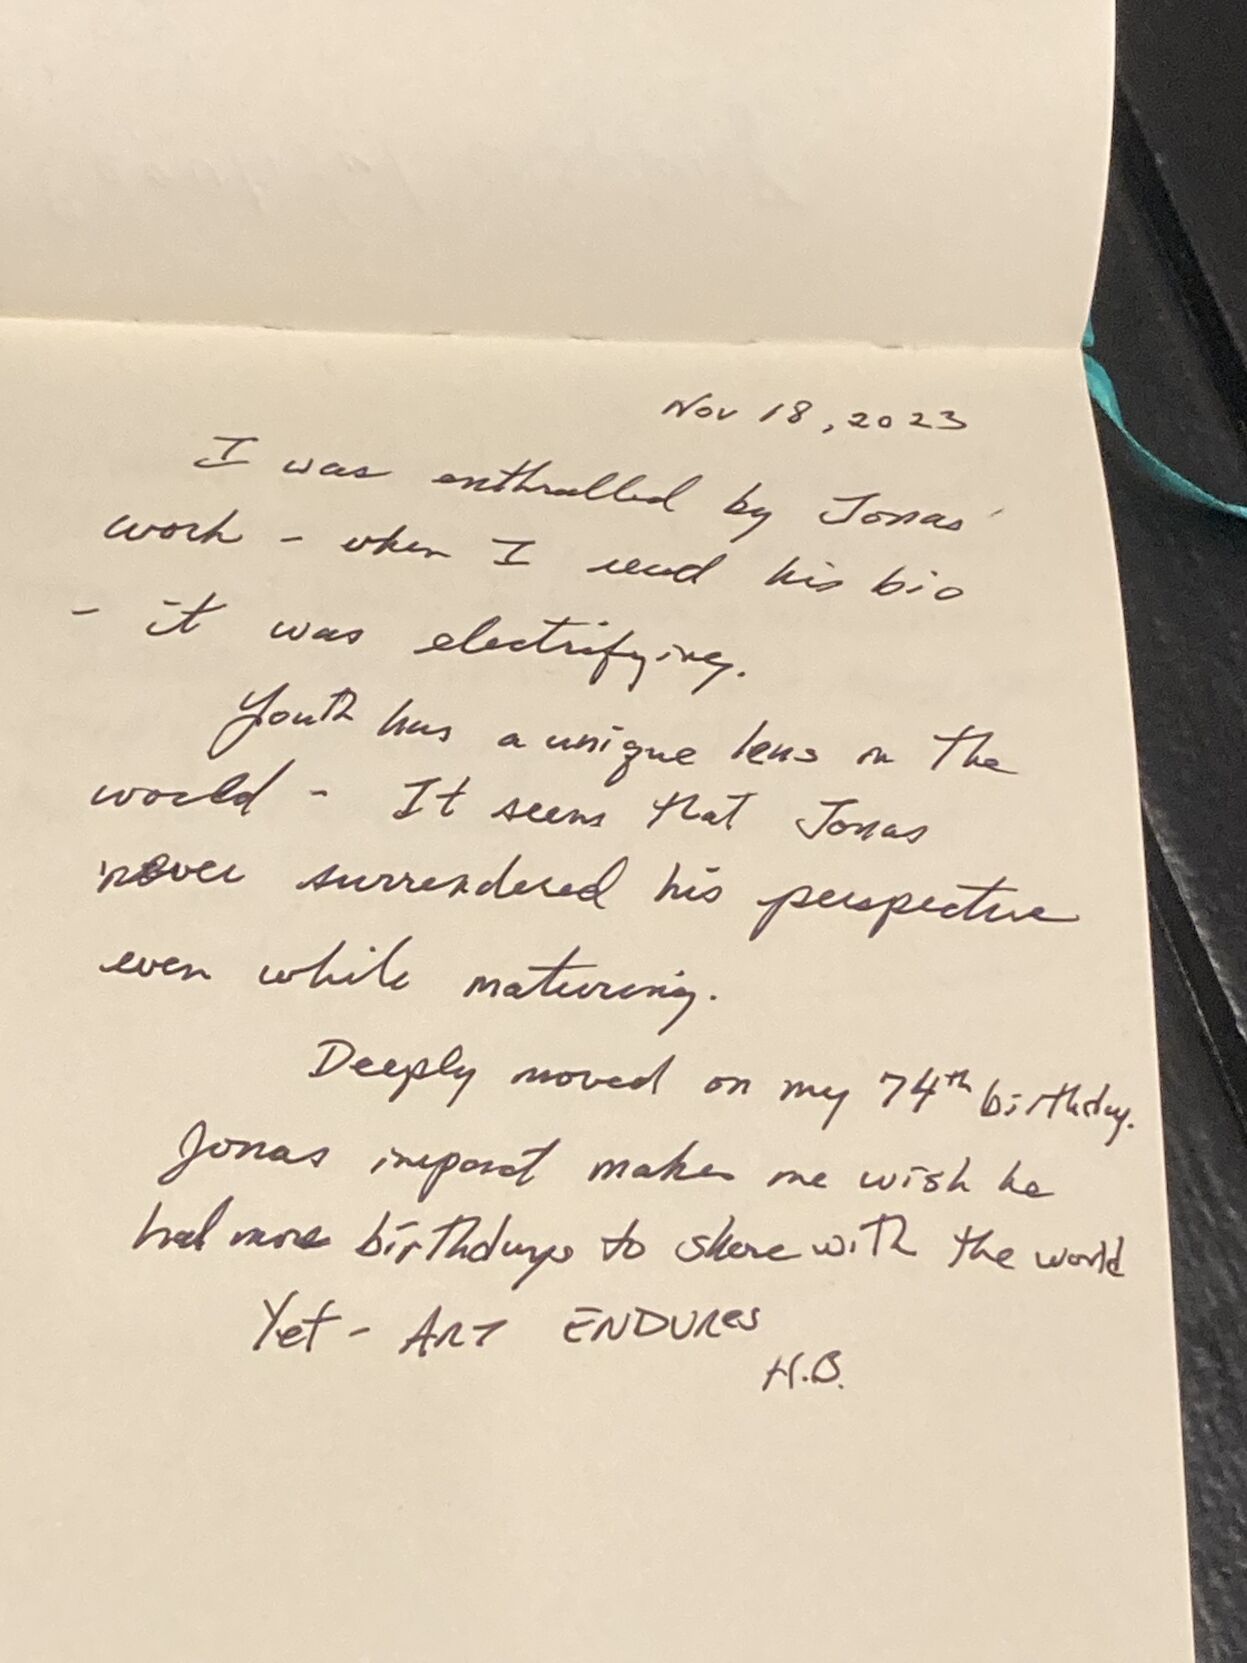 Nov 18, 2023
I was enthralled by Jonas'
work - when I read his bio
- it was electrifying.
Youth has a unique lens on the
world - It seems that Jonas
never surrendered his perspective
even while maturing.
Deeply moved on my 74th birthday.
Jonas impact makes me wish he
had more birthdays to share with the world
Yet - ART ENDURES
H.B.